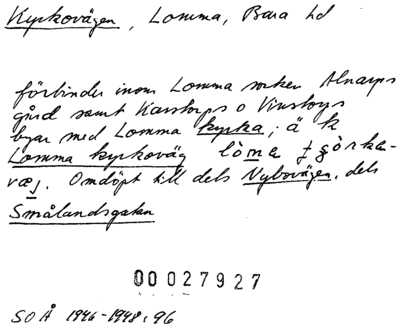 Kyrkovägen, Lomma, Bara hd
förbinder inom Lomma socken Alnarps
gård samt Karstorps o Vinstorps
byar med Lomma kyrka; ä k
Lomma kyrkoväg
væj. Omdöpt till dels Nybovägen, dels
Smålandsgatan
00027927
SOÅ 1946-1948, 96